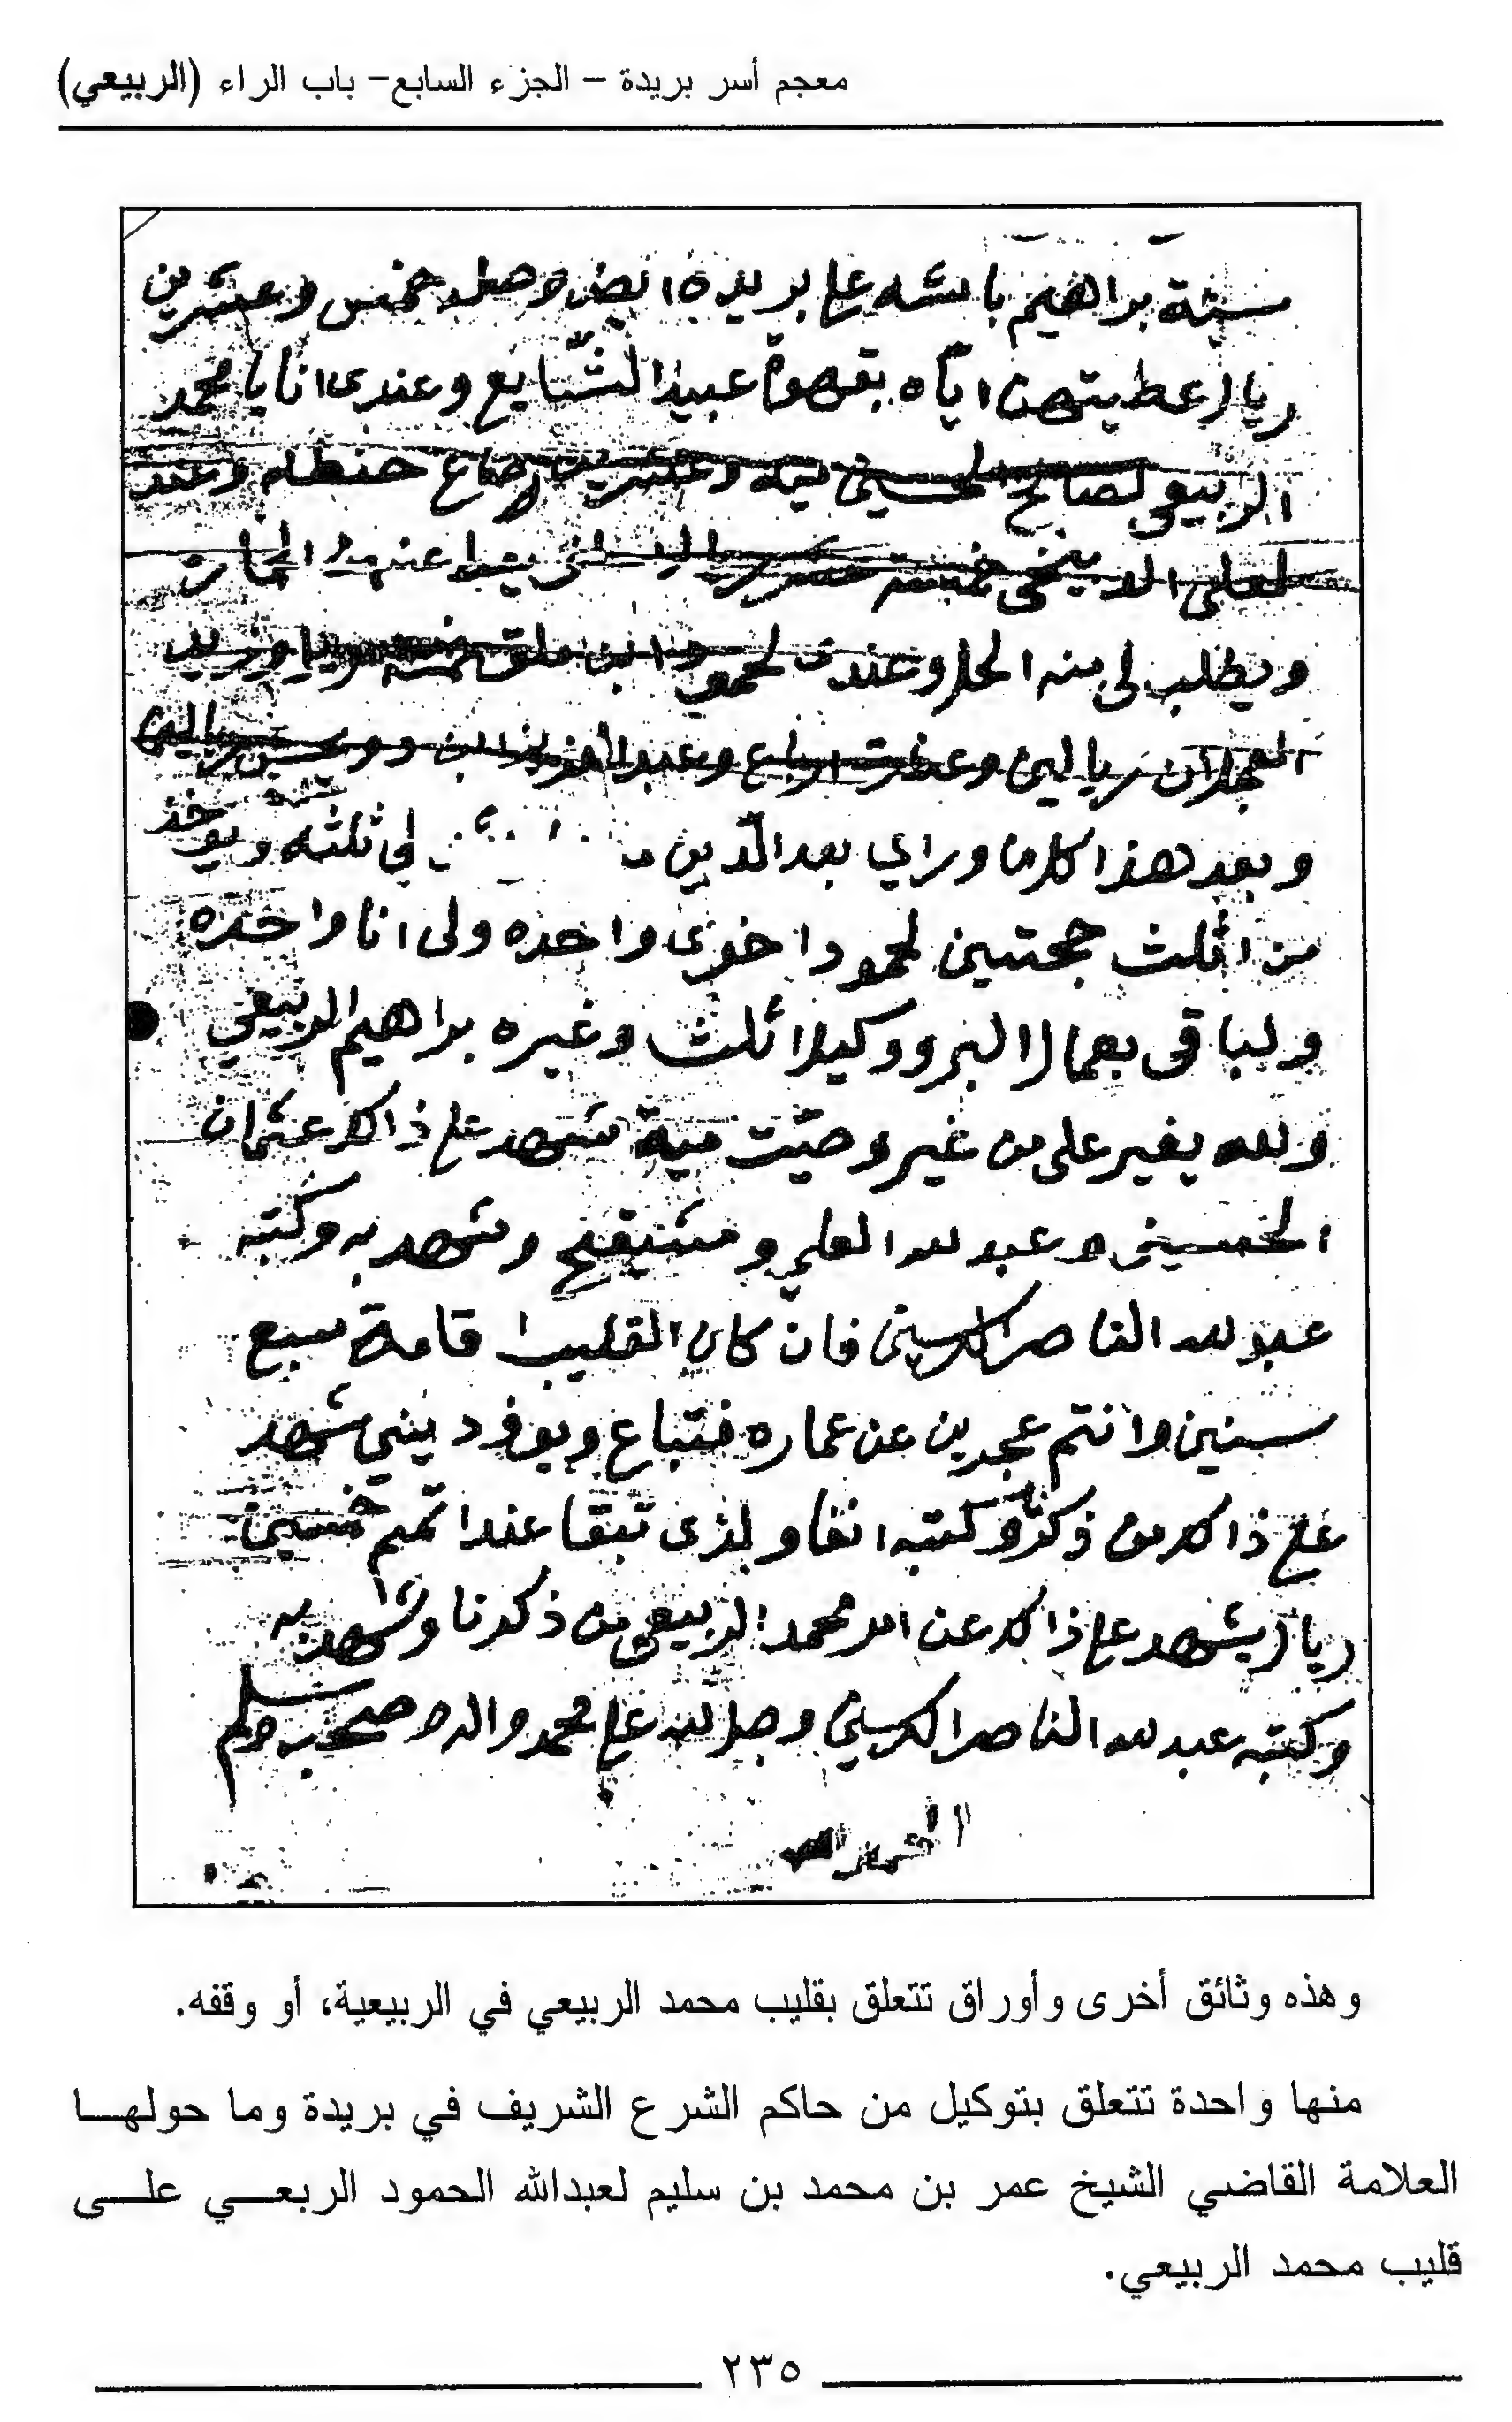 معجم أسر بريدة – الجزء السابع– باب الراء (الربيعي)
سنة براهيم باشه على بريدة ايضا وصله خمس وعشرين
ريال عطيتهن اياه بقهوة عبيد الشايع وعندي انا يا محمد
الربيعي لصالح الحسيني ميه وعشرين صاع حنطه وعند
لعلي
ويطلب لي منه الحل وعندي لحمود
العجلان ريالين وعشرت ارباع وعبدالعزيز ريالين
وبعد هذا كلامي وراي بعد الدين لي ثلثه ويوخذ
من اثلث حجتين لحمود اخوي واحده ولي انا واحده
ولباقي بعمال البر ووكيل اثلث وغيره براهيم الربيعي
ولله يغير على من غير وصيت ميه شهد على ذالك عثمان
الحسيني وعبدلله العلي ومشيقح وشهد به وكتبه
عبدلله الناصر الكرسيني فان كان القليب قامة سبع
سنين وانتم عجزين عن عماره فتباع ويوفو ديني شهد
على ذالك من ذكر وكتبه انفا ولذي تبقا عند تميم خمسين
ريال يشهد على ذالك عن امر محمد الربيعي من ذكرنا وشهد به
وكتبه عبدلله الناصر الكرسيني وصلى لله على محمد واله وصحبه وسلم
وهذه وثائق أخرى وأوراق تتعلق بقليب محمد الربيعي في الربيعية، أو وقفه.
منها واحدة تتعلق بتوكيل من حاكم الشرع الشريف في بريدة وما حولها
العلامة القاضي الشيخ عمر بن محمد بن سليم لعبدالله الحمود الربعي على
قليب محمد الربيعي.
٢٣٥